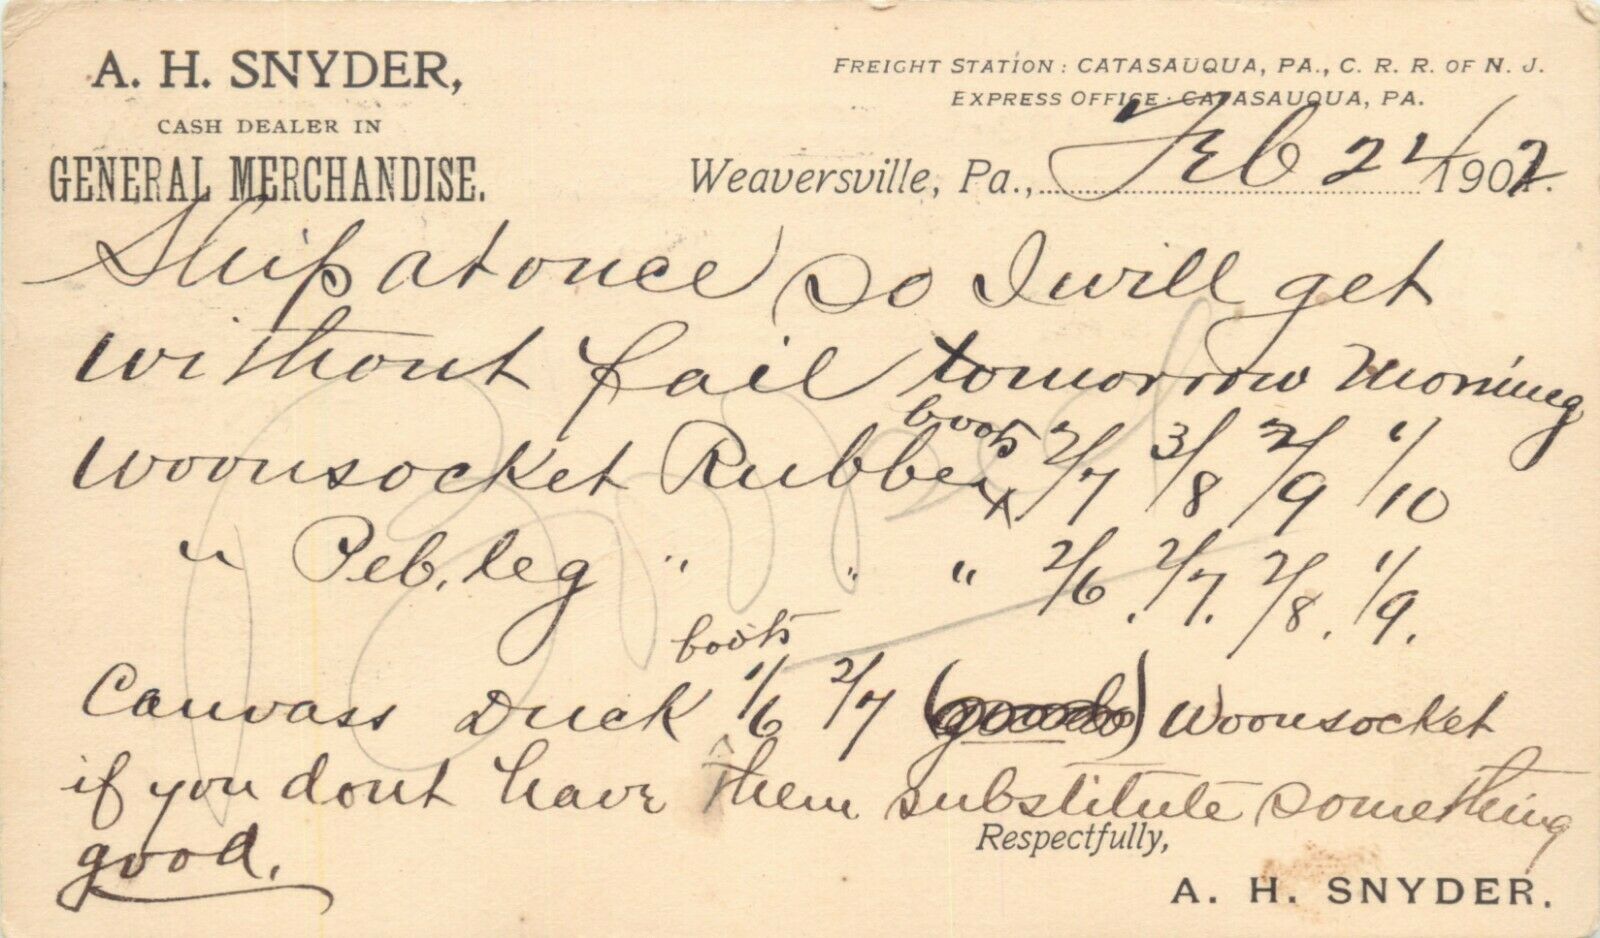 A. H. SNYDER,
CASH DEALER IN
GENERAL MERCHANDISE.
FREIGHT STATION: CATASAUQUA, PA., C. R. R. OF N. J.
EXPRESS OFFICE: CATASAUQUA, PA.
Weaversville, Pa., Feb 24 1902.
Ship at once so I will get
without fail tomorrow morning
Woonsocket Rubber boots 2/7 3/8 2/9 1/10
" Peb. leg " " " 2/6. 2/7. 2/8. 1/9.
Canvass Duck boots 1/6 2/7 ( ) Woonsocket
if you dont have them substitute something
good.
Respectfully,
A. H. SNYDER.